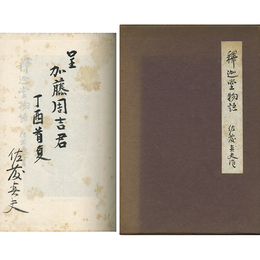 呈
加藤周吉君
丁酉首夏
佐藤春夫
釋迦堂物語
佐藤春夫作